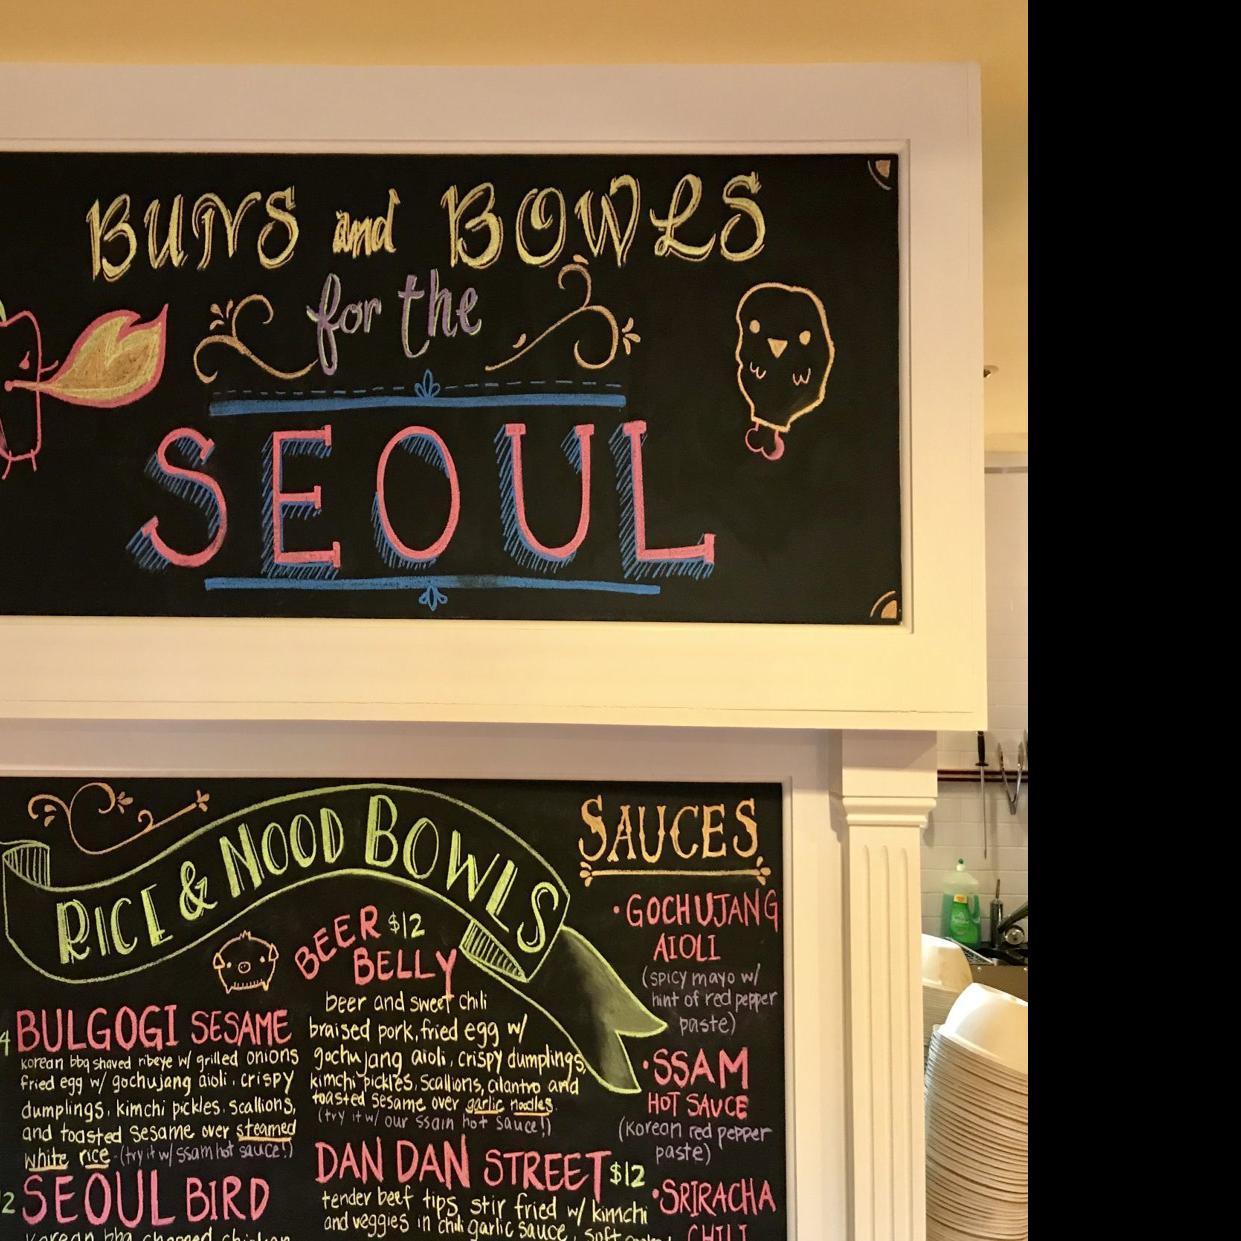 BUNS and BOWLS
for the
SEOUL
RICE & NOOD BOWLS
BEER $12
BELLY
beer and sweet chili
braised pork, fried egg w/
gochujang aioli, crispy dumplings,
kimchi pickles, scallions, cilantro and
toasted sesame over garlic noodles.
(try it w/ our ssam hot sauce!)
4 BULGOGI SESAME
korean bbq shaved ribeye w/ grilled onions
fried egg w/ gochujang aioli, crispy
dumplings, kimchi pickles, scallions,
and toasted sesame over steamed
white rice (try it w/ ssam hot sauce!)
DAN DAN STREET $12
tender beef tips, stir fried w/ kimchi
and veggies in chili garlic sauce, soft
2 SEOUL BIRD
korean bbq chopped chicken
SAUCES
• GOCHUJANG
AIOLI
(spicy mayo w/
hint of red pepper
paste)
• SSAM
HOT SAUCE
(korean red pepper
paste)
• SRIRACHA
CHILI